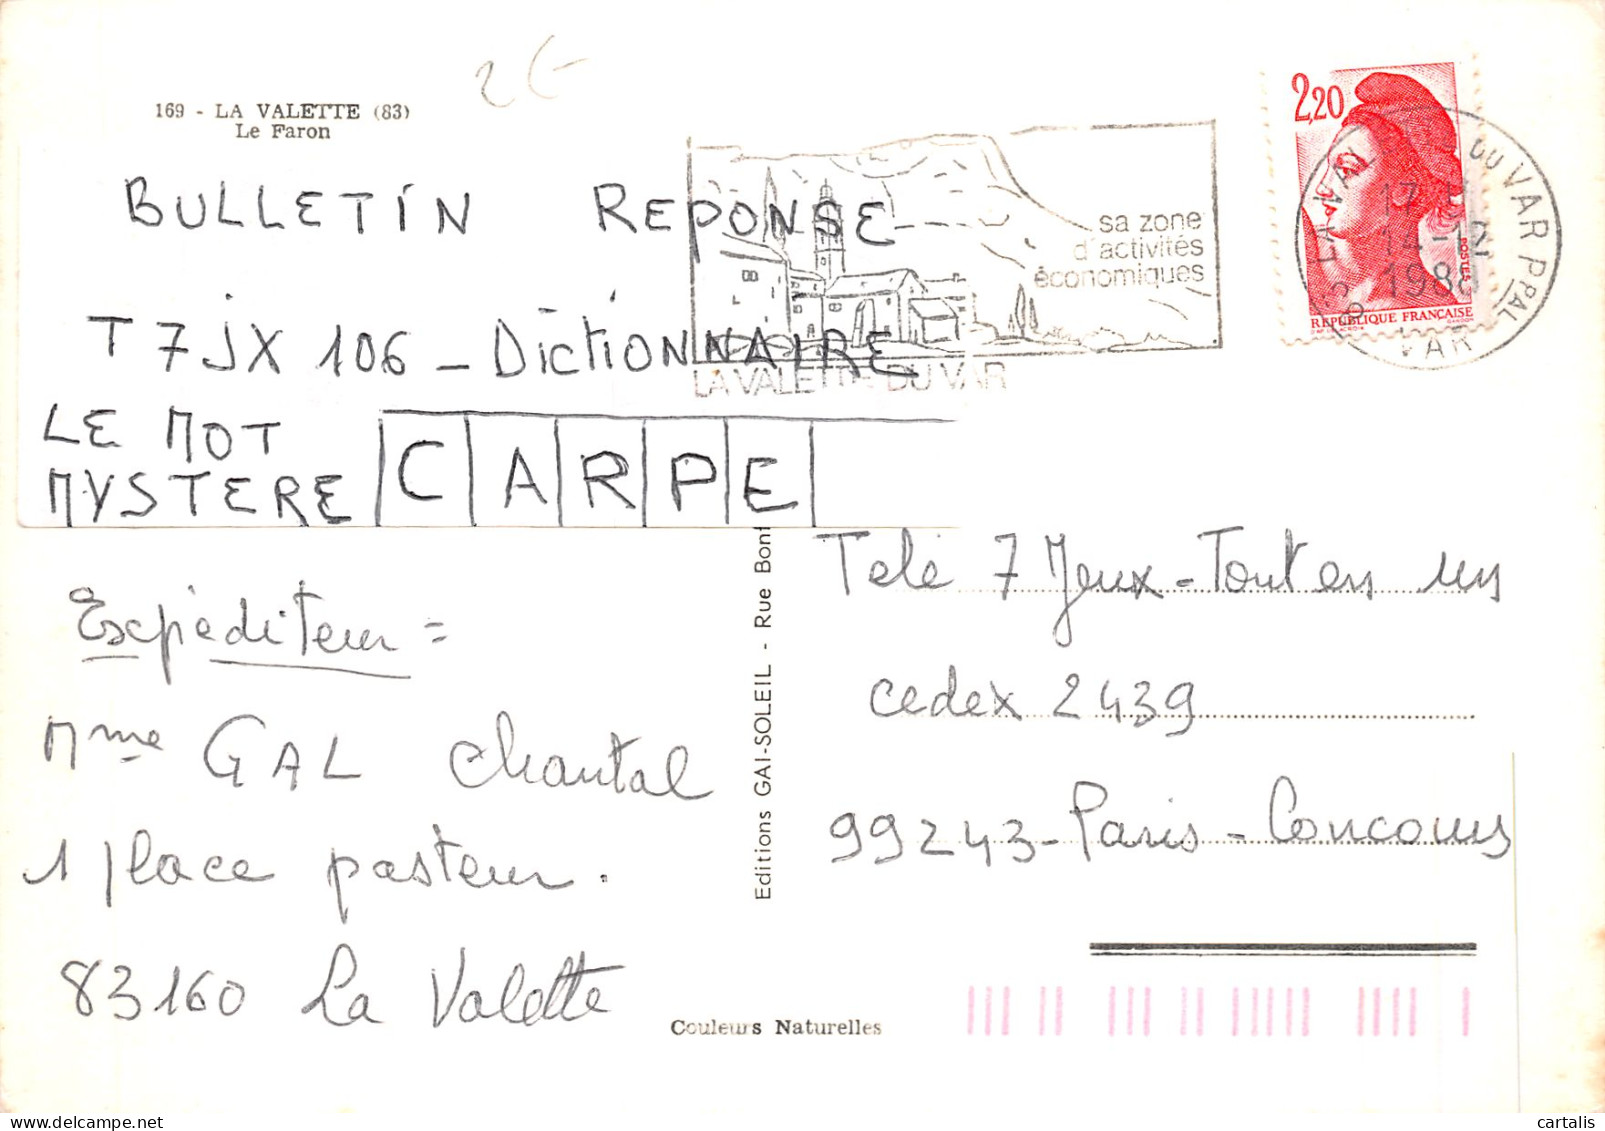 2€
169 - LA VALETTE (83)
Le Faron
BULLETIN REPONSE
T7JX 106 - DictiONNAIRE
LE MOT
MYSTERE CARPE
sa zone
d'activités
économiques
LA VALETTE DU VAR
2,20
POSTES
REPUBLIQUE FRANÇAISE
83 LA VALETTE DU VAR PPAL
17 H
14-12
1988
VAR
Expéditeur =
Mme GAL Chantal
1 place pasteur.
83160 La Valette
Editions GAI-SOLEIL - Rue Bon
Tele 7 Jeux - Tout en un
cedex 2439
99243 - Paris - Concours
Couleurs Naturelles
cartalis